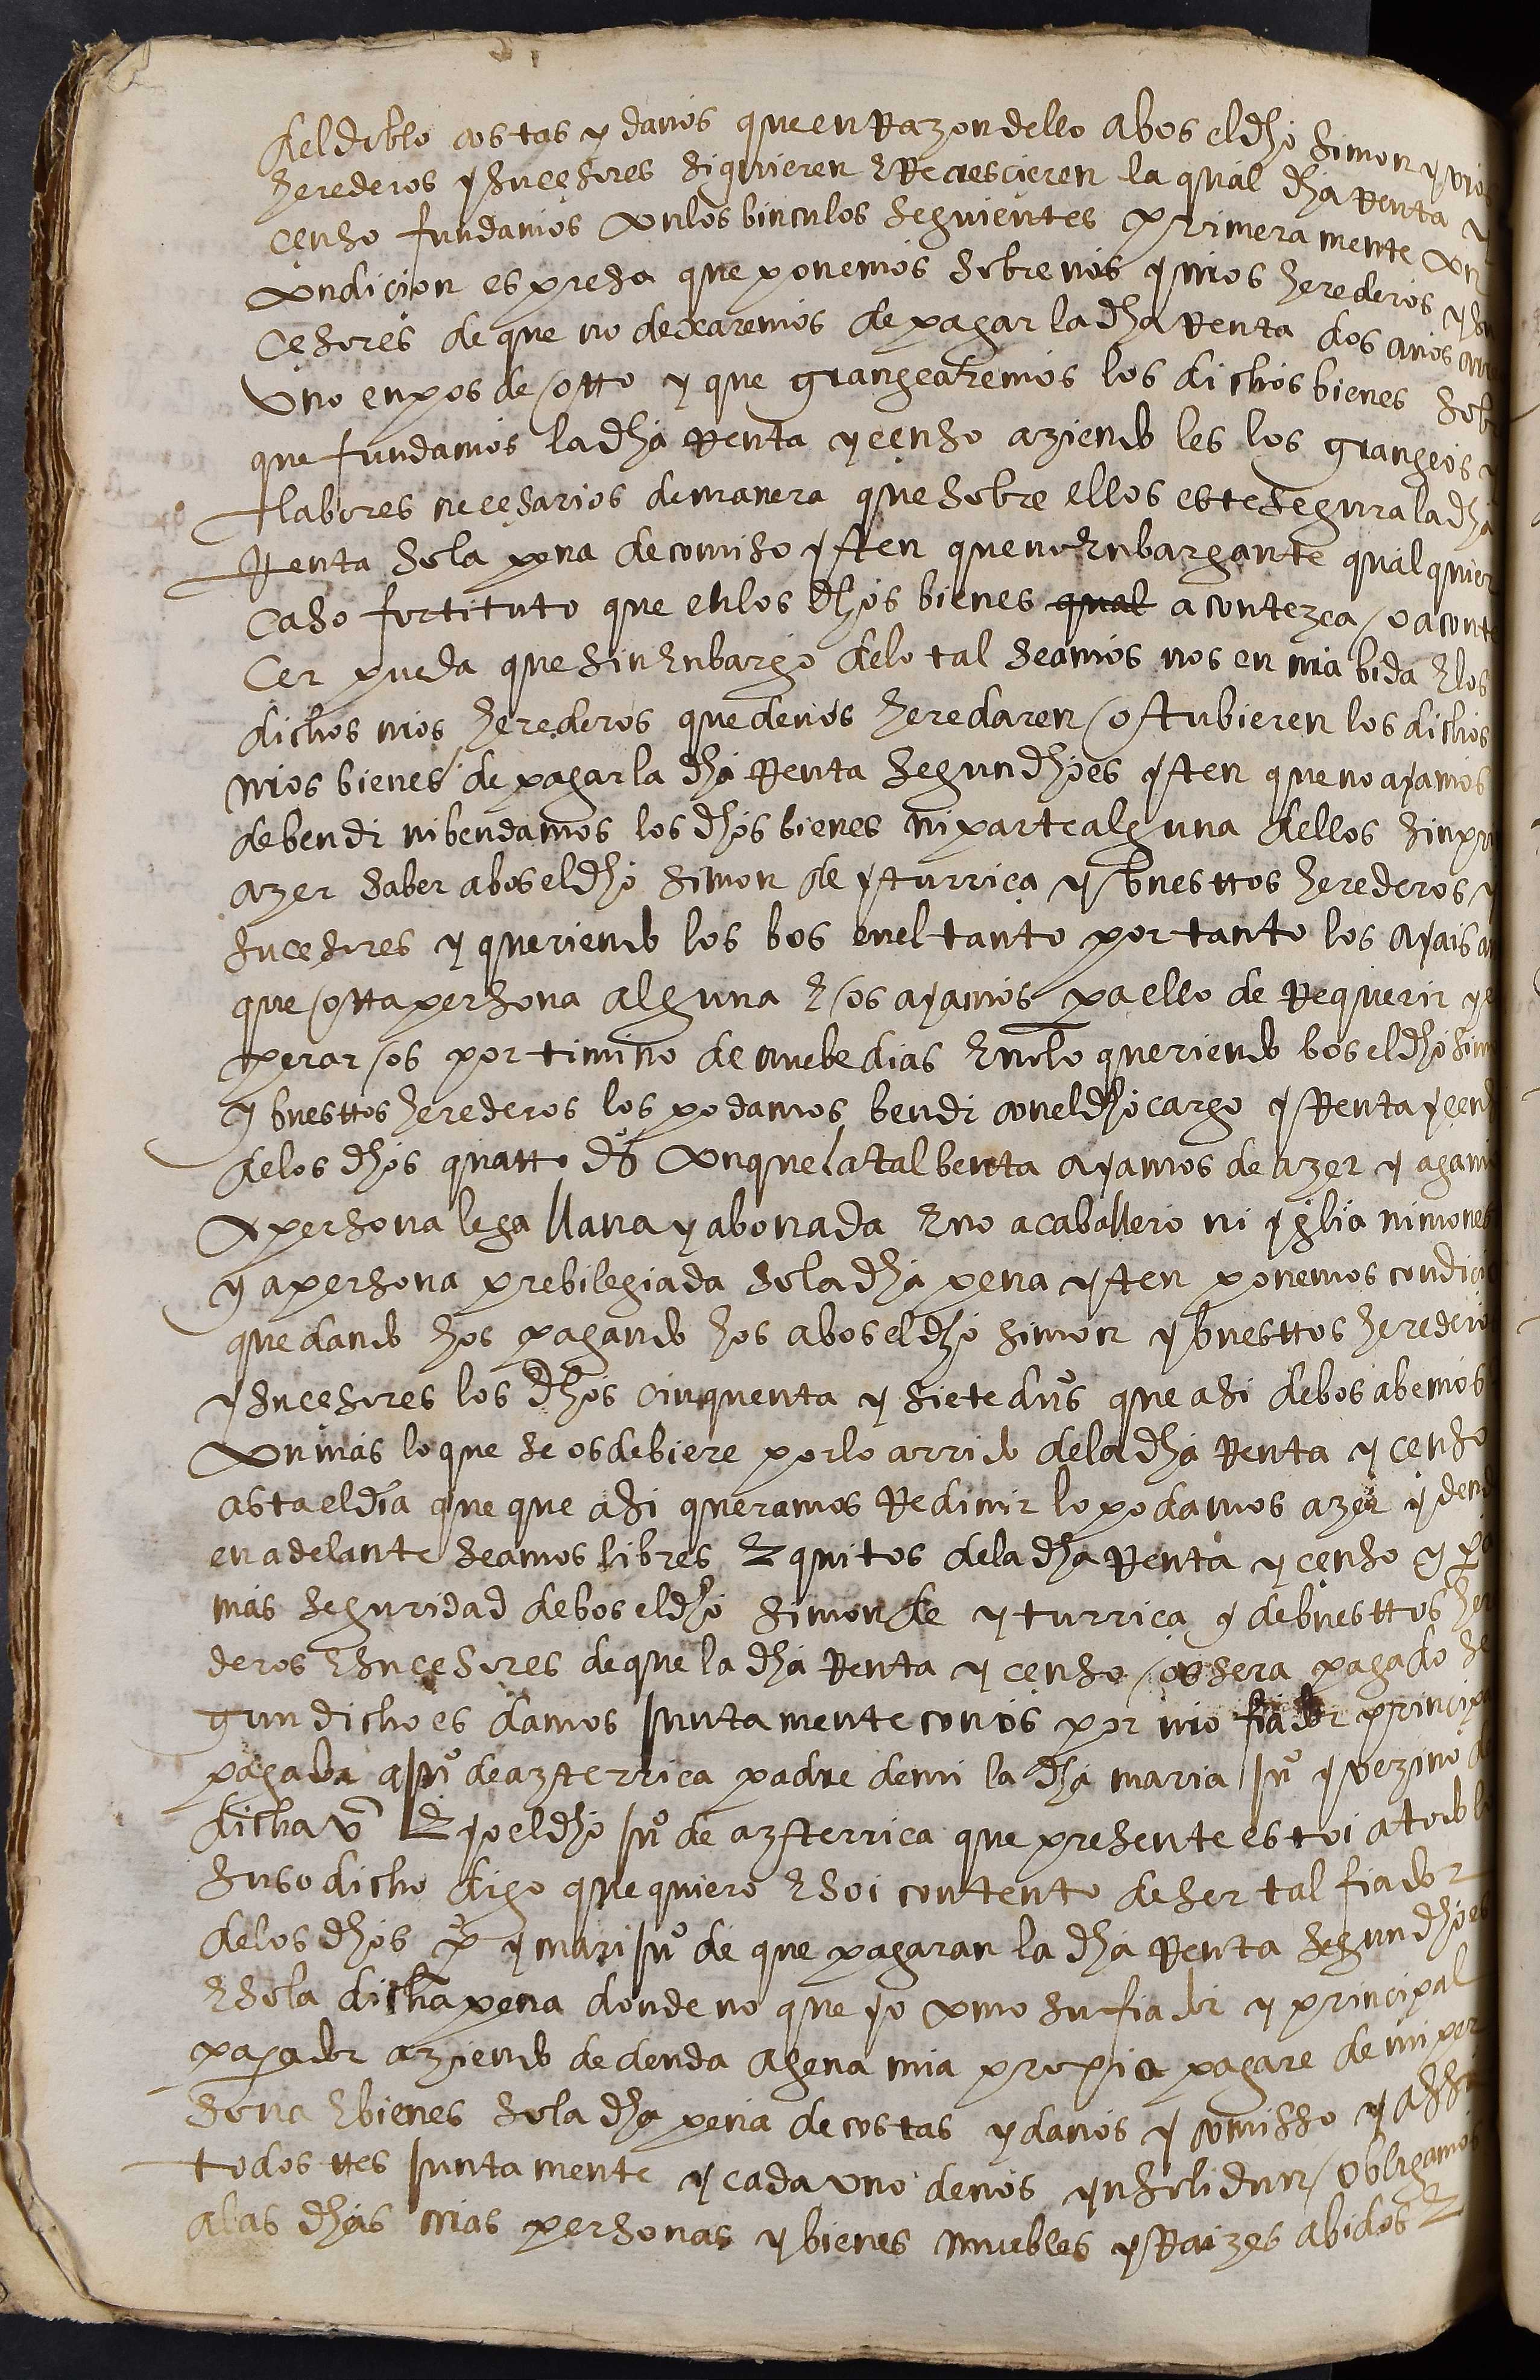 del doblo costas y daños que en Razon dello a bos el dho Simon y vros
herederos y sucesores siguieren E Recrescieren la qual dha Renta y
çenso fundamos con los binculos seguientes primera mente con
condicion espresa que ponemos sobre nos y nros herederos y su
cesores de que no dexaremos de pagar la dha Renta dos años
uno en pos de otro y que grangearemos los dichos bienes sob
que fundamos la dha Renta y censo aziendo les los grangeos y
labores necesarios de manera que sobre ellos este segura la dha
Renta so la pena de comiso yten que no Enbargante qualquier
caso fortituto que en los dhos bienes qual acontezca o aconte
cer pueda que sin Enbargo de lo tal seamos nos en nra bida E los
dichos nros herederos que de nos heredaren o tubieren los dichos
nros bienes de pagar la dha Renta segun dho es yten que no ayamos
de bendi ni bendamos los dhos bienes ni parte alguna dellos sin pr
azer saber a bos el dho Simon de yturriça y buestros herederos y
sucesores y queriendo los bos en el tanto por tanto los ayais
que otra persona alguna E os ayamos pa ello de Requerir y
perar os por timino de nuebe dias E no lo queriendo bos el dho Sim
y buestros herederos los podamos bendi con el dho cargo y Renta y cen
de los dhos quatro ds con que la tal benta ayamos de azer y agam
a persona lega llana y abonada E no a caballero ni yglia ni mones
y a persona prebilegiada so la dha pena yten ponemos condici
que dando hos pagando hos a bos el dho Simon y buestros heredero
y sucesores los dhos cinquenta y siete dus que asi de bos abemos
con mas lo que se os debiere por lo corrido de la dha Renta y censo
asta el dia que que asi queramos Redimir lo podamos azer y dend
en adelante seamos libres E quitos de la dha Renta y censo y pa
mas seguridad de bos el dho Simon de yturriça y de buestros her
deros E sucesores de que la dha Renta y censo os sera pagado se
gun dicho es damos juntamente con os por nro fiador principa
pagador a juo de azterrica padre de mi la dha maria juo y vezino de
dicha va E yo el dho juo de azterrica que presente estoi a todo lo
suso dicho digo que quiero E soi contento de ser tal fiador
de los dhos po y mari juo de que pagaran la dha Renta segun dho es
E so la dicha pena donde no que yo como su fiador y principal
pagador aziendo de deuda agena mia propia pagare de mi per
sona E bienes so la dha pena de costas y daños y comisso y assi
todos tres junta mente y cada uno de nos ynsolidun obligamos
a las dhas nras personas y bienes muebles y Raizes abidos E